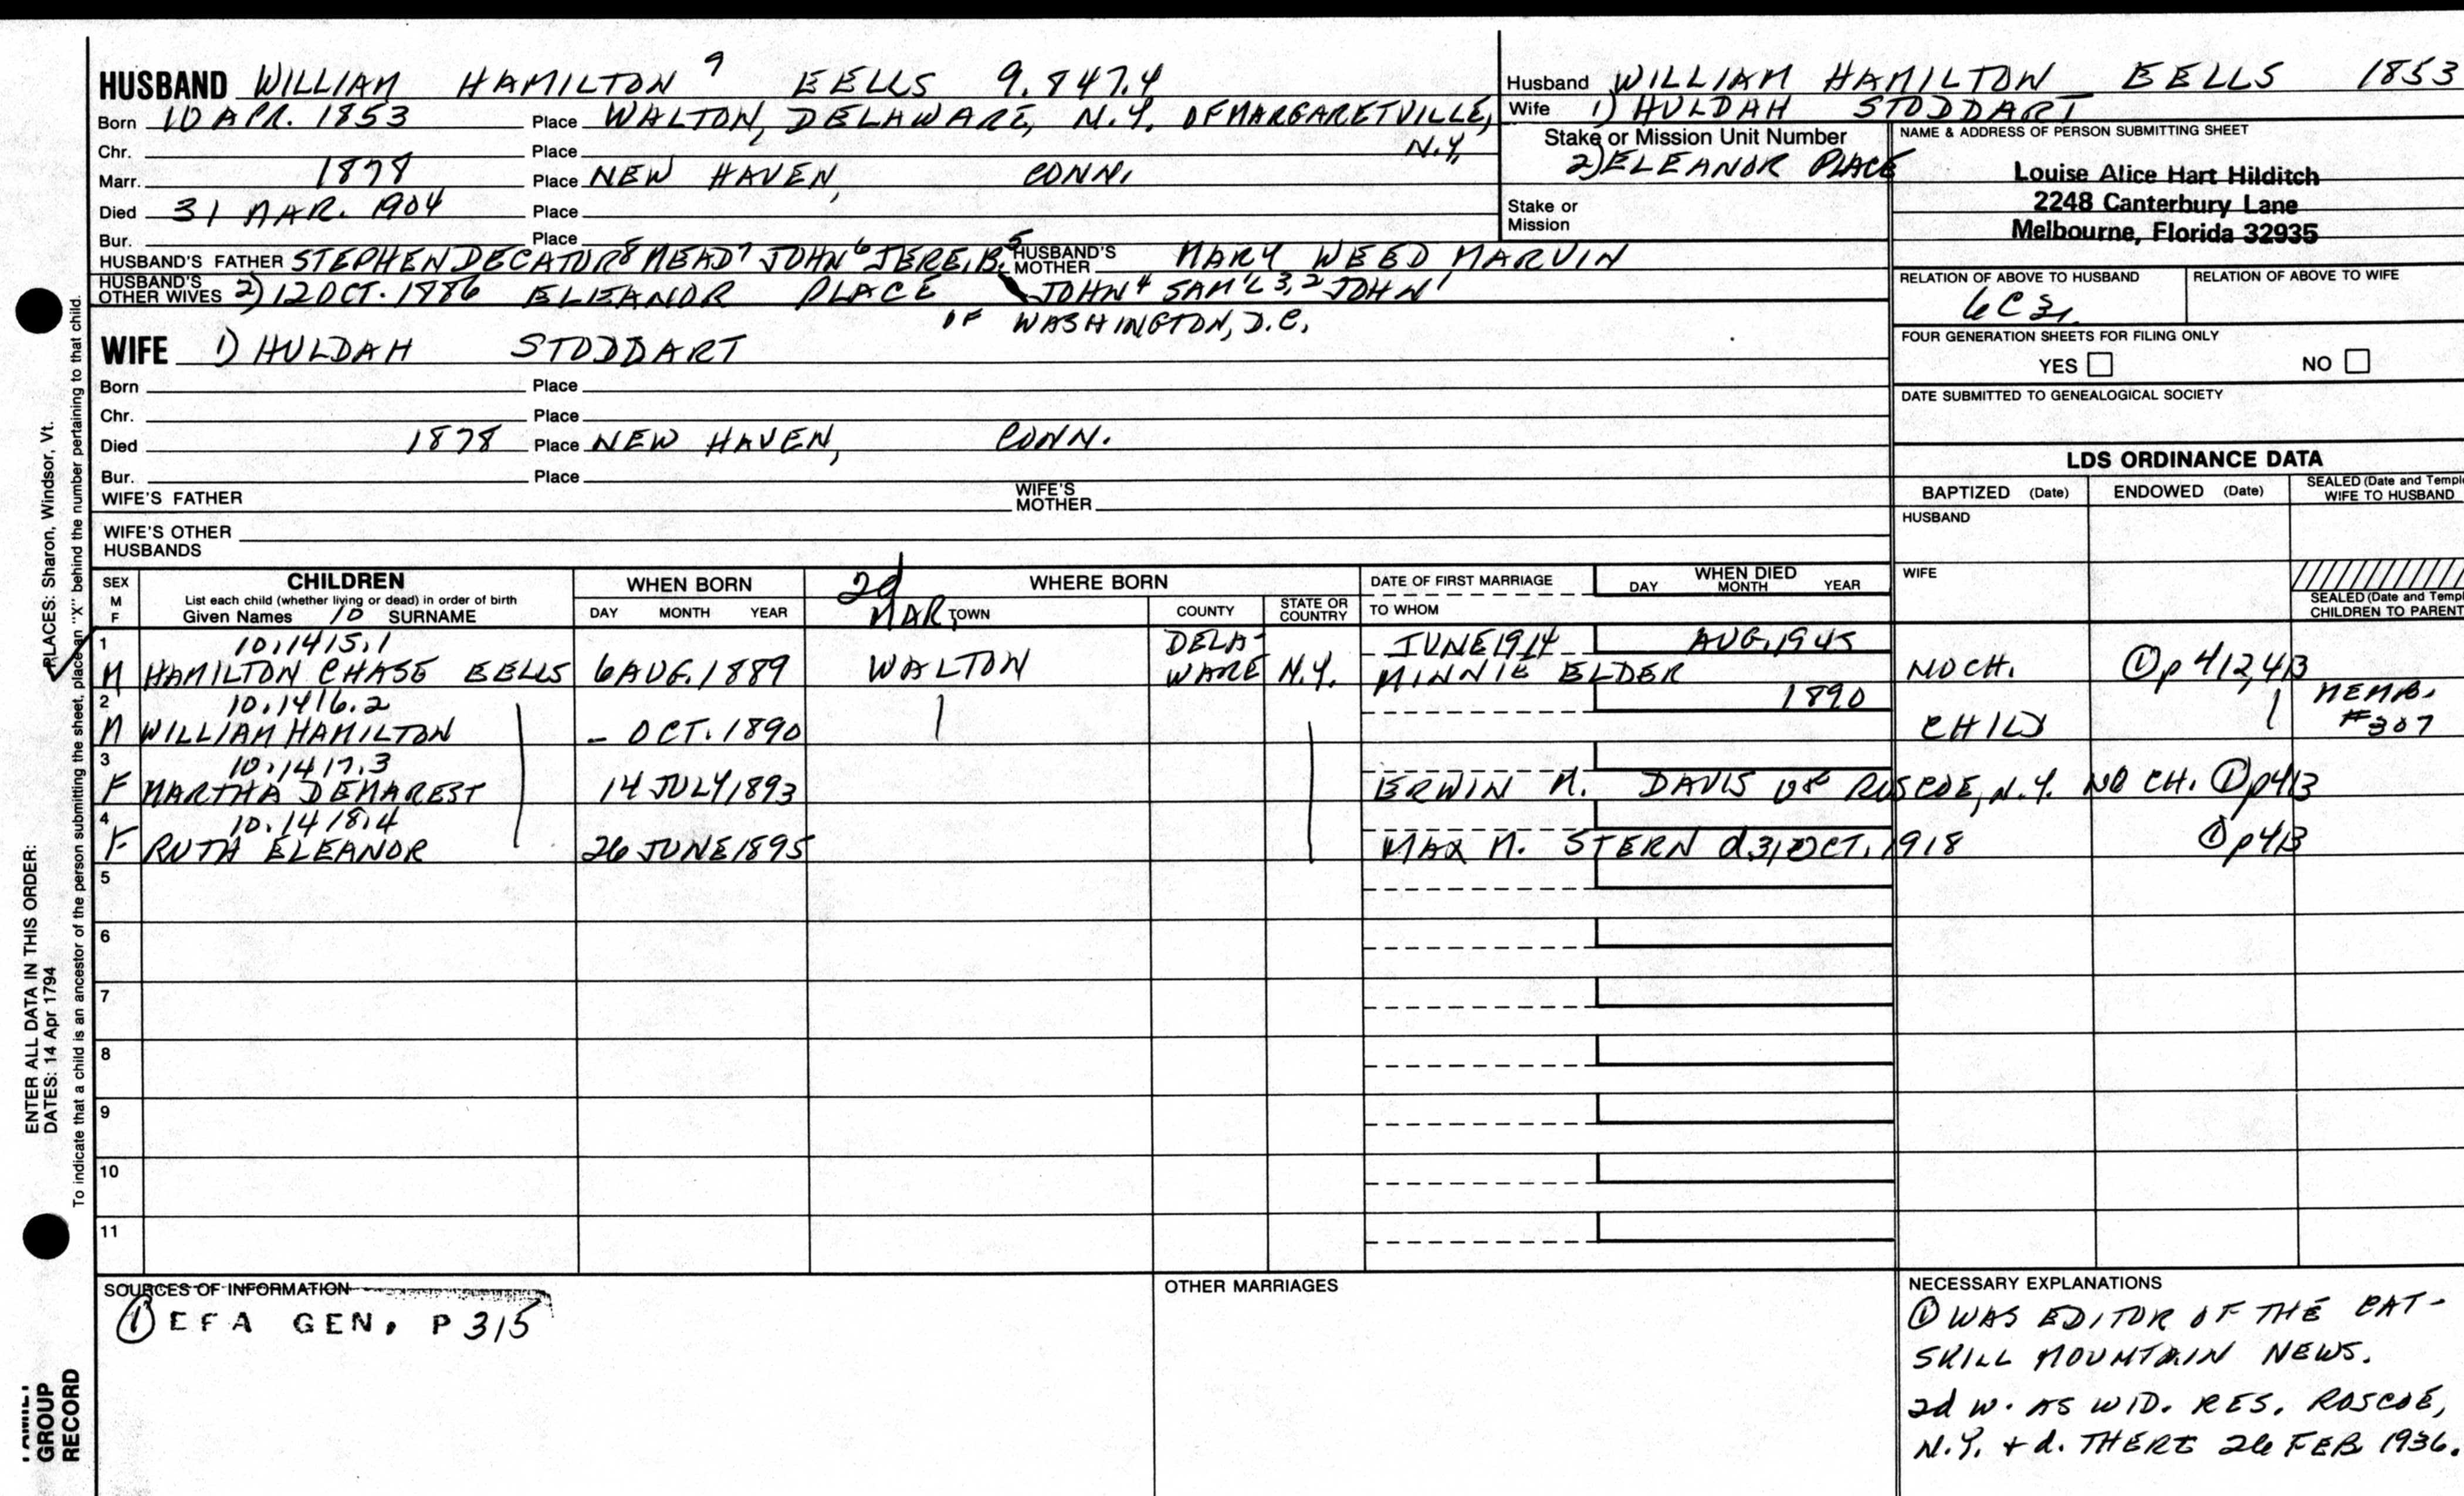 HUSBAND WILLIAM HAMILTON 9 EELLS 9.847.4
Born 10 APR. 1853 Place WALTON, DELAWARE, N.Y. OF MARGARETVILLE,
Chr. Place N.Y.
Marr. 1878 Place NEW HAVEN, CONN.
Died 31 MAR. 1904 Place
Bur. Place
HUSBAND'S FATHER STEPHEN DECATUR 8 MEAD 7 JOHN 6 JERE. B. 5 HUSBAND'S MOTHER MARY WEED MARVIN
HUSBAND'S OTHER WIVES 2) 12 OCT. 1886 ELEANOR PLACE JOHN 4 SAM'L 3, 2 JOHN 1
OF WASHINGTON, D.C.
WIFE 1) HULDAH STODDART
Born Place
Chr. Place
Died 1878 Place NEW HAVEN, CONN.
Bur. Place
WIFE'S FATHER WIFE'S MOTHER
WIFE'S OTHER HUSBANDS
Husband WILLIAM HAMILTON EELLS 1853
Wife 1) HULDAH STODDART
Stake or Mission Unit Number
2) ELEANOR PLACE
Stake or Mission
NAME & ADDRESS OF PERSON SUBMITTING SHEET
Louise Alice Hart Hilditch
2248 Canterbury Lane
Melbourne, Florida 32935
RELATION OF ABOVE TO HUSBAND RELATION OF ABOVE TO WIFE
6C3r.
FOUR GENERATION SHEETS FOR FILING ONLY
YES NO
DATE SUBMITTED TO GENEALOGICAL SOCIETY
LDS ORDINANCE DATA
BAPTIZED (Date) ENDOWED (Date) SEALED (Date and Templ
WIFE TO HUSBAND
HUSBAND
WIFE
SEALED (Date and Templ
CHILDREN TO PARENT
SEX M F CHILDREN WHEN BORN 2d MAR. WHERE BORN DATE OF FIRST MARRIAGE WHEN DIED
List each child (whether living or dead) in order of birth
Given Names 10 SURNAME DAY MONTH YEAR TOWN COUNTY STATE OR COUNTRY TO WHOM DAY MONTH YEAR
1 10,1415.1 DELA- JUNE 1914 AUG. 1945
M HAMILTON CHASE EELLS 6 AUG. 1889 WALTON WARE N.Y. MINNIE ELDER NO CH. ① p 412, 413
2 10,1416.2 1890 MEMB.
M WILLIAM HAMILTON - OCT. 1890 CHILD #307
3 10,1417.3
F MARTHA DEMAREST 14 JULY 1893 ERWIN M. DAVIS OF ROSCOE, N.Y. NO CH. ① p413
4 10,1418.4
F RUTH ELEANOR 26 JUNE 1895 MAX M. STERN d. 31 OCT. 1918 ① p413
5
6
7
8
9
10
11
SOURCES OF INFORMATION
① EFA GEN. P 315
OTHER MARRIAGES
NECESSARY EXPLANATIONS
① WAS EDITOR OF THE CAT-
SKILL MOUNTAIN NEWS.
2d W. AS WID. RES. ROSCOE,
N.Y. + d. THERE 26 FEB 1936.
PLACES: Sharon, Windsor, Vt.
ENTER ALL DATA IN THIS ORDER:
DATES: 14 Apr 1794
To indicate that a child is an ancestor of the person submitting the sheet, place an "X" behind the number pertaining to that child.
FAMILY
GROUP
RECORD